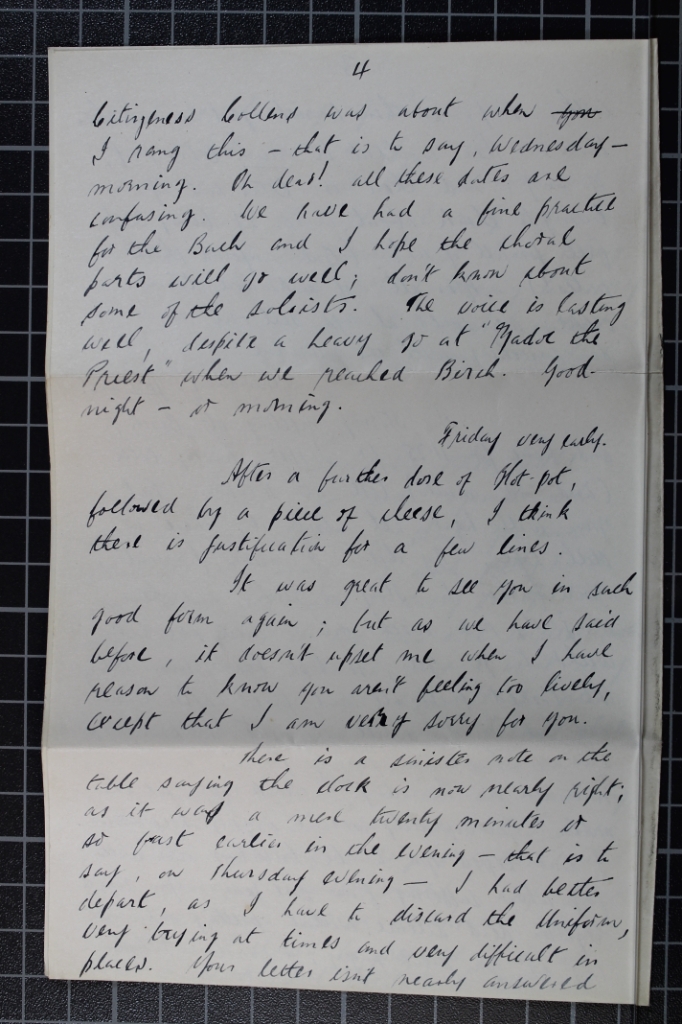 4
Citizeness Collens was about when ~~you~~
I rang this – that is to say, Wednesday –
morning. Oh dear! all these dates are
confusing. We have had a fine practice
for the Bach and I hope the choral
parts will go well; don't know about
some of the soloists. The voice is lasting
well, despite a heavy go at "Zadoc the
Priest" when we reached Birch. Good-
night – or morning.
Friday very early.
After a further dose of Hot-pot,
followed by a piece of cheese, I think
there is justification for a few lines.
It was great to see you in such
good form again; but as we have said
before, it doesn't upset me when I have
reason to know you aren't feeling too lively,
except that I am very sorry for you.
There is a sinister note on the
table saying the clock is now nearly right;
as it was a mere twenty minutes or
so fast earlier in the evening – that is to
say, on Thursday evening – I had better
depart, as I have to discard the Uniform,
very trying at times and very difficult in
places. Your letter isn't nearly answered